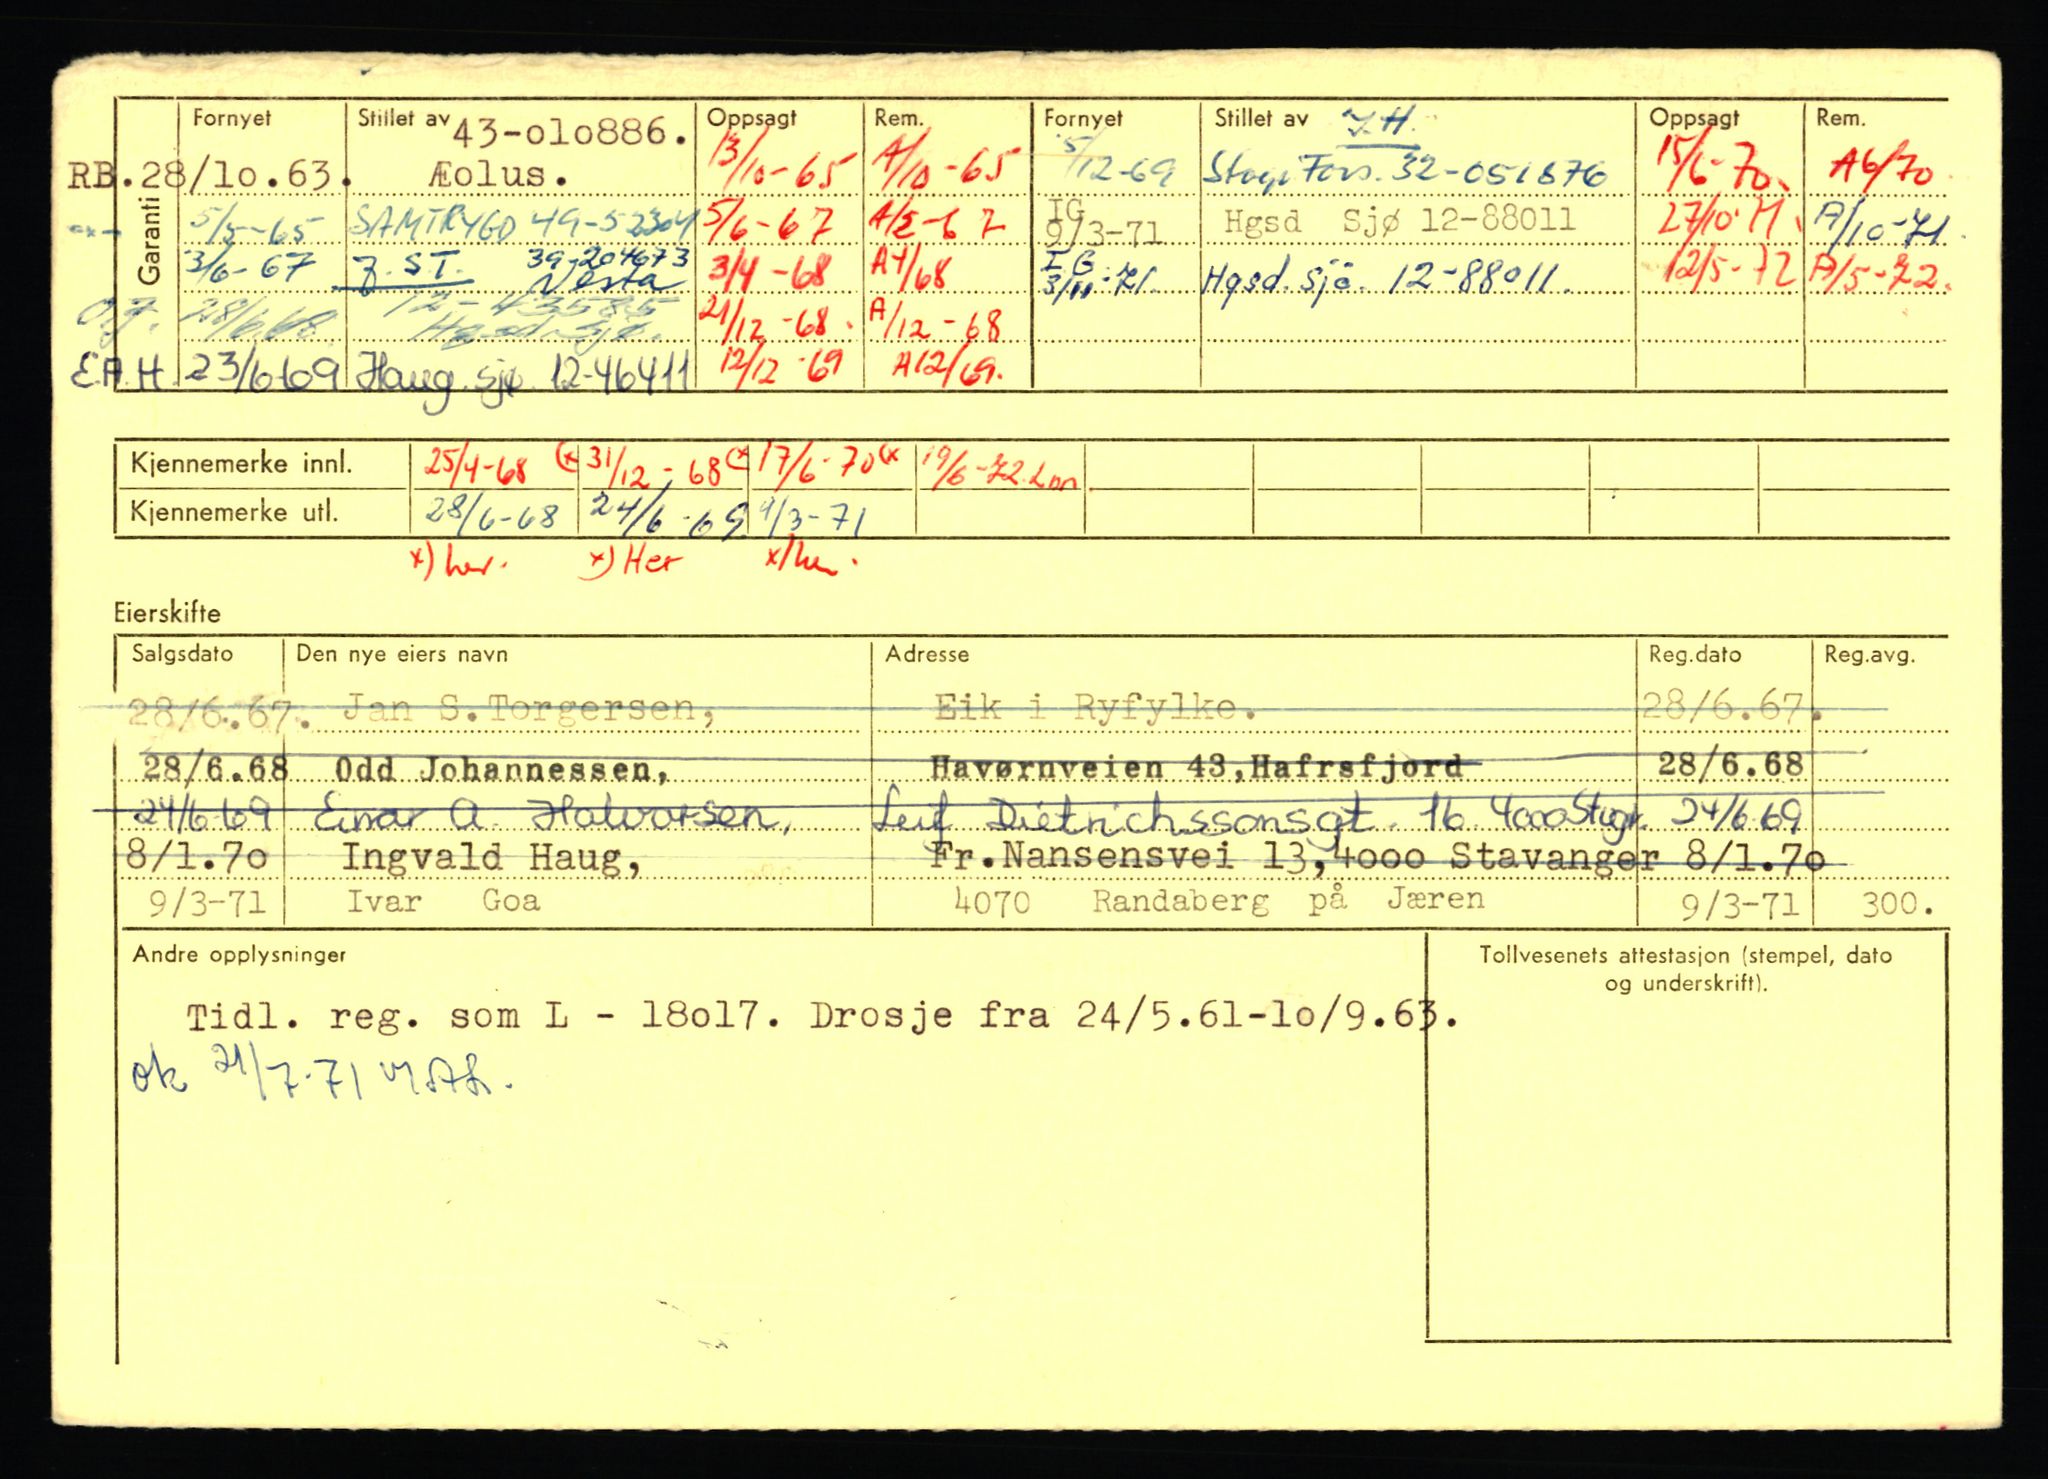 Garanti
Fornyet Stillet av Oppsagt Rem. Fornyet Stillet av Oppsagt Rem.
43-olo886. I.H.
RB.28/lo.63. Æolus. 13/10-65 A/10-65 5/12-69 Fors. 32-051876 15/6-70. A6/70
5/5-65 SAMTRYGD 49-52304 5/6-67 IG 9/3-71 Hgsd Sjø 12-88011 27/10 71 A/10-71.
3/6-67 J.S.T. 39-204673 Vesta 3/4-68 A4/68 I G 12/5-72 A/5-72.
Hgsd. sjø. 12-88011.
O.J. 28/6.68 12-43585 Hgsd. Sjø. 21/12-68. A/12-68
E.A.H. 23/6 69 Haug. sjø 12-46411 12/12-69 A12/69.
Kjennemerke innl. 25/4-68 (x 31/12-68 (x 17/6-70 (x 19/6-72
Kjennemerke utl. 28/6-68 24/6-69 9/3-71
x) her. x) Her x) her.
Eierskifte
Salgsdato Den nye eiers navn Adresse Reg.dato Reg.avg.
28/6.67. Jan S.Torgersen, Eik i Ryfylke. 28/6.67.
28/6.68 Odd Johannessen, Havørnveien 43,Hafrsfjord 28/6.68
24/6-69 Einar A. Halvorsen, Leif Dietrichssonsgt. 16 4000 Stvgr. 24/6 69
8/1.7o Ingvald Haug, Fr.Nansensvei 13,4ooo Stavanger 8/1.7o
9/3-71 Ivar Goa 4070 Randaberg på Jæren 9/3-71 300.
Andre opplysninger Tollvesenets attestasjon (stempel, dato
og underskrift).
Tidl. reg. som L - 18o17. Drosje fra 24/5.61-lo/9.63.
ok 21/7-71